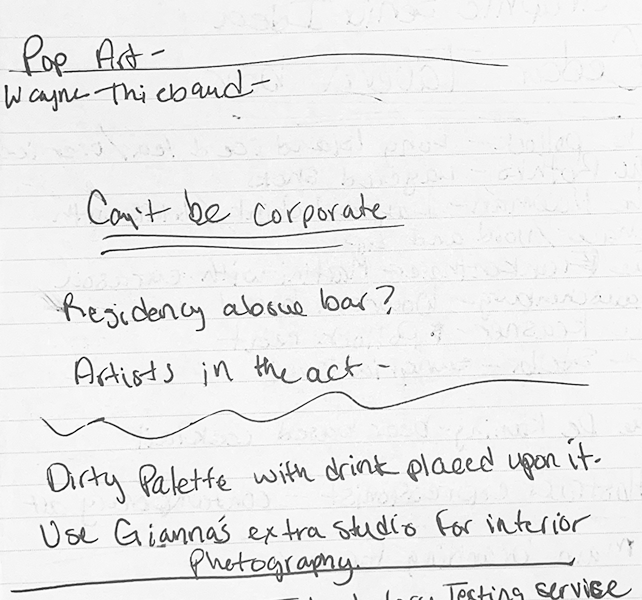 Pop Art -
Wayne Thiebaud -
Can't be corporate
Residency above bar?
Artists in the act -
Dirty Palette with drink placed upon it.
Use Gianna's extra studio for interior
Photography.
Testing servise